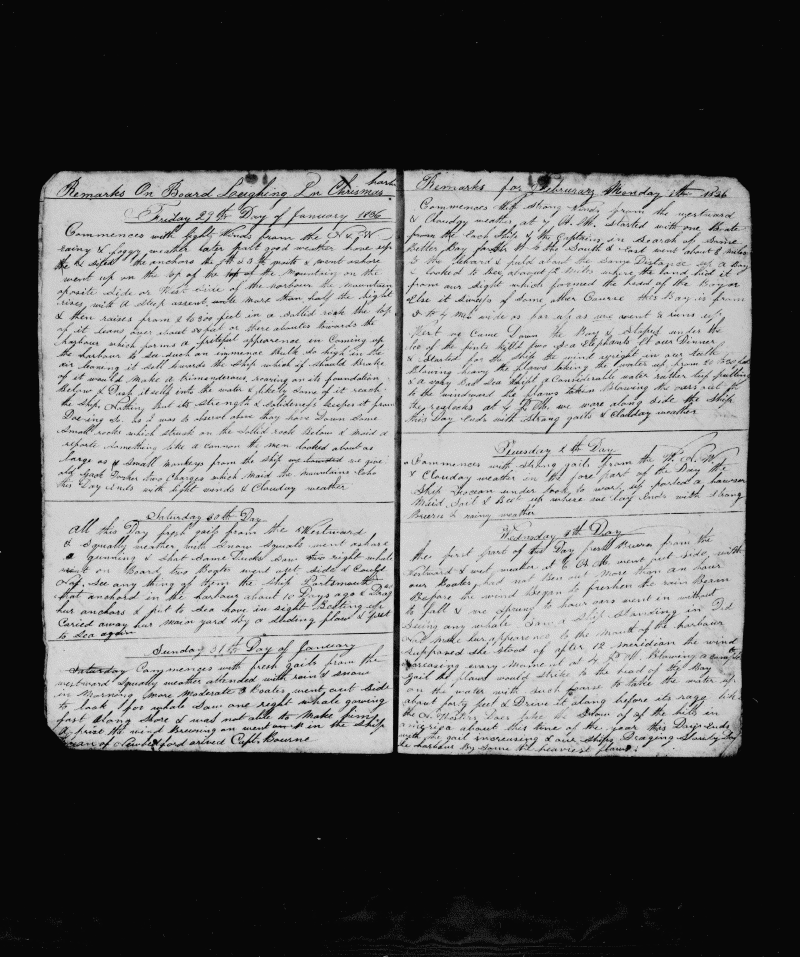 Remarks On Board Laughing In Chrismas harb
Friday 29th Day of January 1836
Commences with light winds from the N & W
rainy & foggy weather later part good weather hove up
the anchors the & went ashore
went up on the top of the of the Mountain on the
oposite side or West side of the harbour the mountain
rises with a steep assent until more than half the hight
& then raises from 2 to 300 feet in a solled rock the top
of it leans over about 20 feet or there abouts towards the
harbour which forms a frightful appearence in Coming up
the harbour to see such an immence Bulk so high in the
air leaning it self towards the Ship which if should Brake
of it would Make a trimenderous roaring on its foundation
Below & Dash it self into the water & likely Some of it reach
the Ship Nothing but its strength & solidness keepes it from
Doe ing So, as I was to observe above they hove Down Some
Small rocks which struck on the solled rock Below & Maid a
reporte something like a cannon the men looked about as
large as Small Monkeys from the ship we give
old Jack two Charges which Maid the Mountains Echo
this Day Ends with light winds & Clouday weather
Saturday 30th Day
All this Day fresh gails from the Westward
& Squally weather with Snow Squals went ashore
a gunning & Shot Some Ducks Saw two right whale
went on Board two Boats went out side & Could
Not See any thing of them the Ship Portsmouth
that anchord in the harbour about 10 Days ago & Drag
hur anchors & put to sea hove in sight Betting up
Caried away hur main yard by a
to sea again
Sunday 31th Day of January
Saturday Commences with fresh gails from the
westward Squally weather attended with rain & snow
in Morning More Moderate 3 Boates went out side
to look for whale Saw one right whale gowing
fast Along Shore & was not able to Make
the wind Breezing on went in the Ship
of arived Capt. Bourne
Remarks for Februrary Monday 1th 1836
Commences with strong winds from the westward
& Cloudy weather at 7 A. M. Started with one Boate
from the Each Ship & the Captains in Search of Some
Better Bay for to the South & East went about 8 miles
to the Leward & puld about the Same Distance up a Bay
& looked to Bee about 12 Miles where the land hid it
from our Sight which formed the head of the Bay or
Else it Sweeps of Some other Course this Bay is from
3 to 4 Mile wide as far up as we went & runs up
Next we Came Down the Bay & Stoped under the
lee of the pints killed two Sea Elephants Et our Dinner
& Started for the Ship the wind upright in our teeth
Blowing heavy the flaws taking the water up from 20 to 30 feet
& a very Bad Sea Shipt a Considerable water rather Ship pulling
to the windward the flaws taken Blowing the oars out of
the rowlocks at 4 P. M. we were along side the Ship
this Day Ends with Strong gails & Clouday weather
Tuesday 2th Day
Commences with Strong gails from the N. & W.
& Clouday weather in the fore part of the Day the
Ship under took to worp up parted a hawser
Maid Sail & Bect up where we lay Ends with strong
Breezes & rainy weather
Wednsday Day
the first part of this Day fresh Breezes from the
Westward & wet weather at 6 A. M. went out side with
our Boates, had not Been out More than an hour
Before the wind Began to freshen the rain Began
to fall & we Sprung to hour oers went in without
Seing any whale Saw a Ship Standing in Did
not make hur appearence to the Mouth of the harbour
Supposed she Stood of after 12 meridian the wind
increasing every Moment at 4 P. M. Blowing a
gail the flaws would Strike to the head of the Bay
on the water with such as to take the water up
about forty feet & Drive it along before its rage like
the N. Wester Does take the Snow of of the hills in
America about this time of the year this Day Ends
with the gail increasing & our Ships Draging
the harbour By Some the heaviest flaws